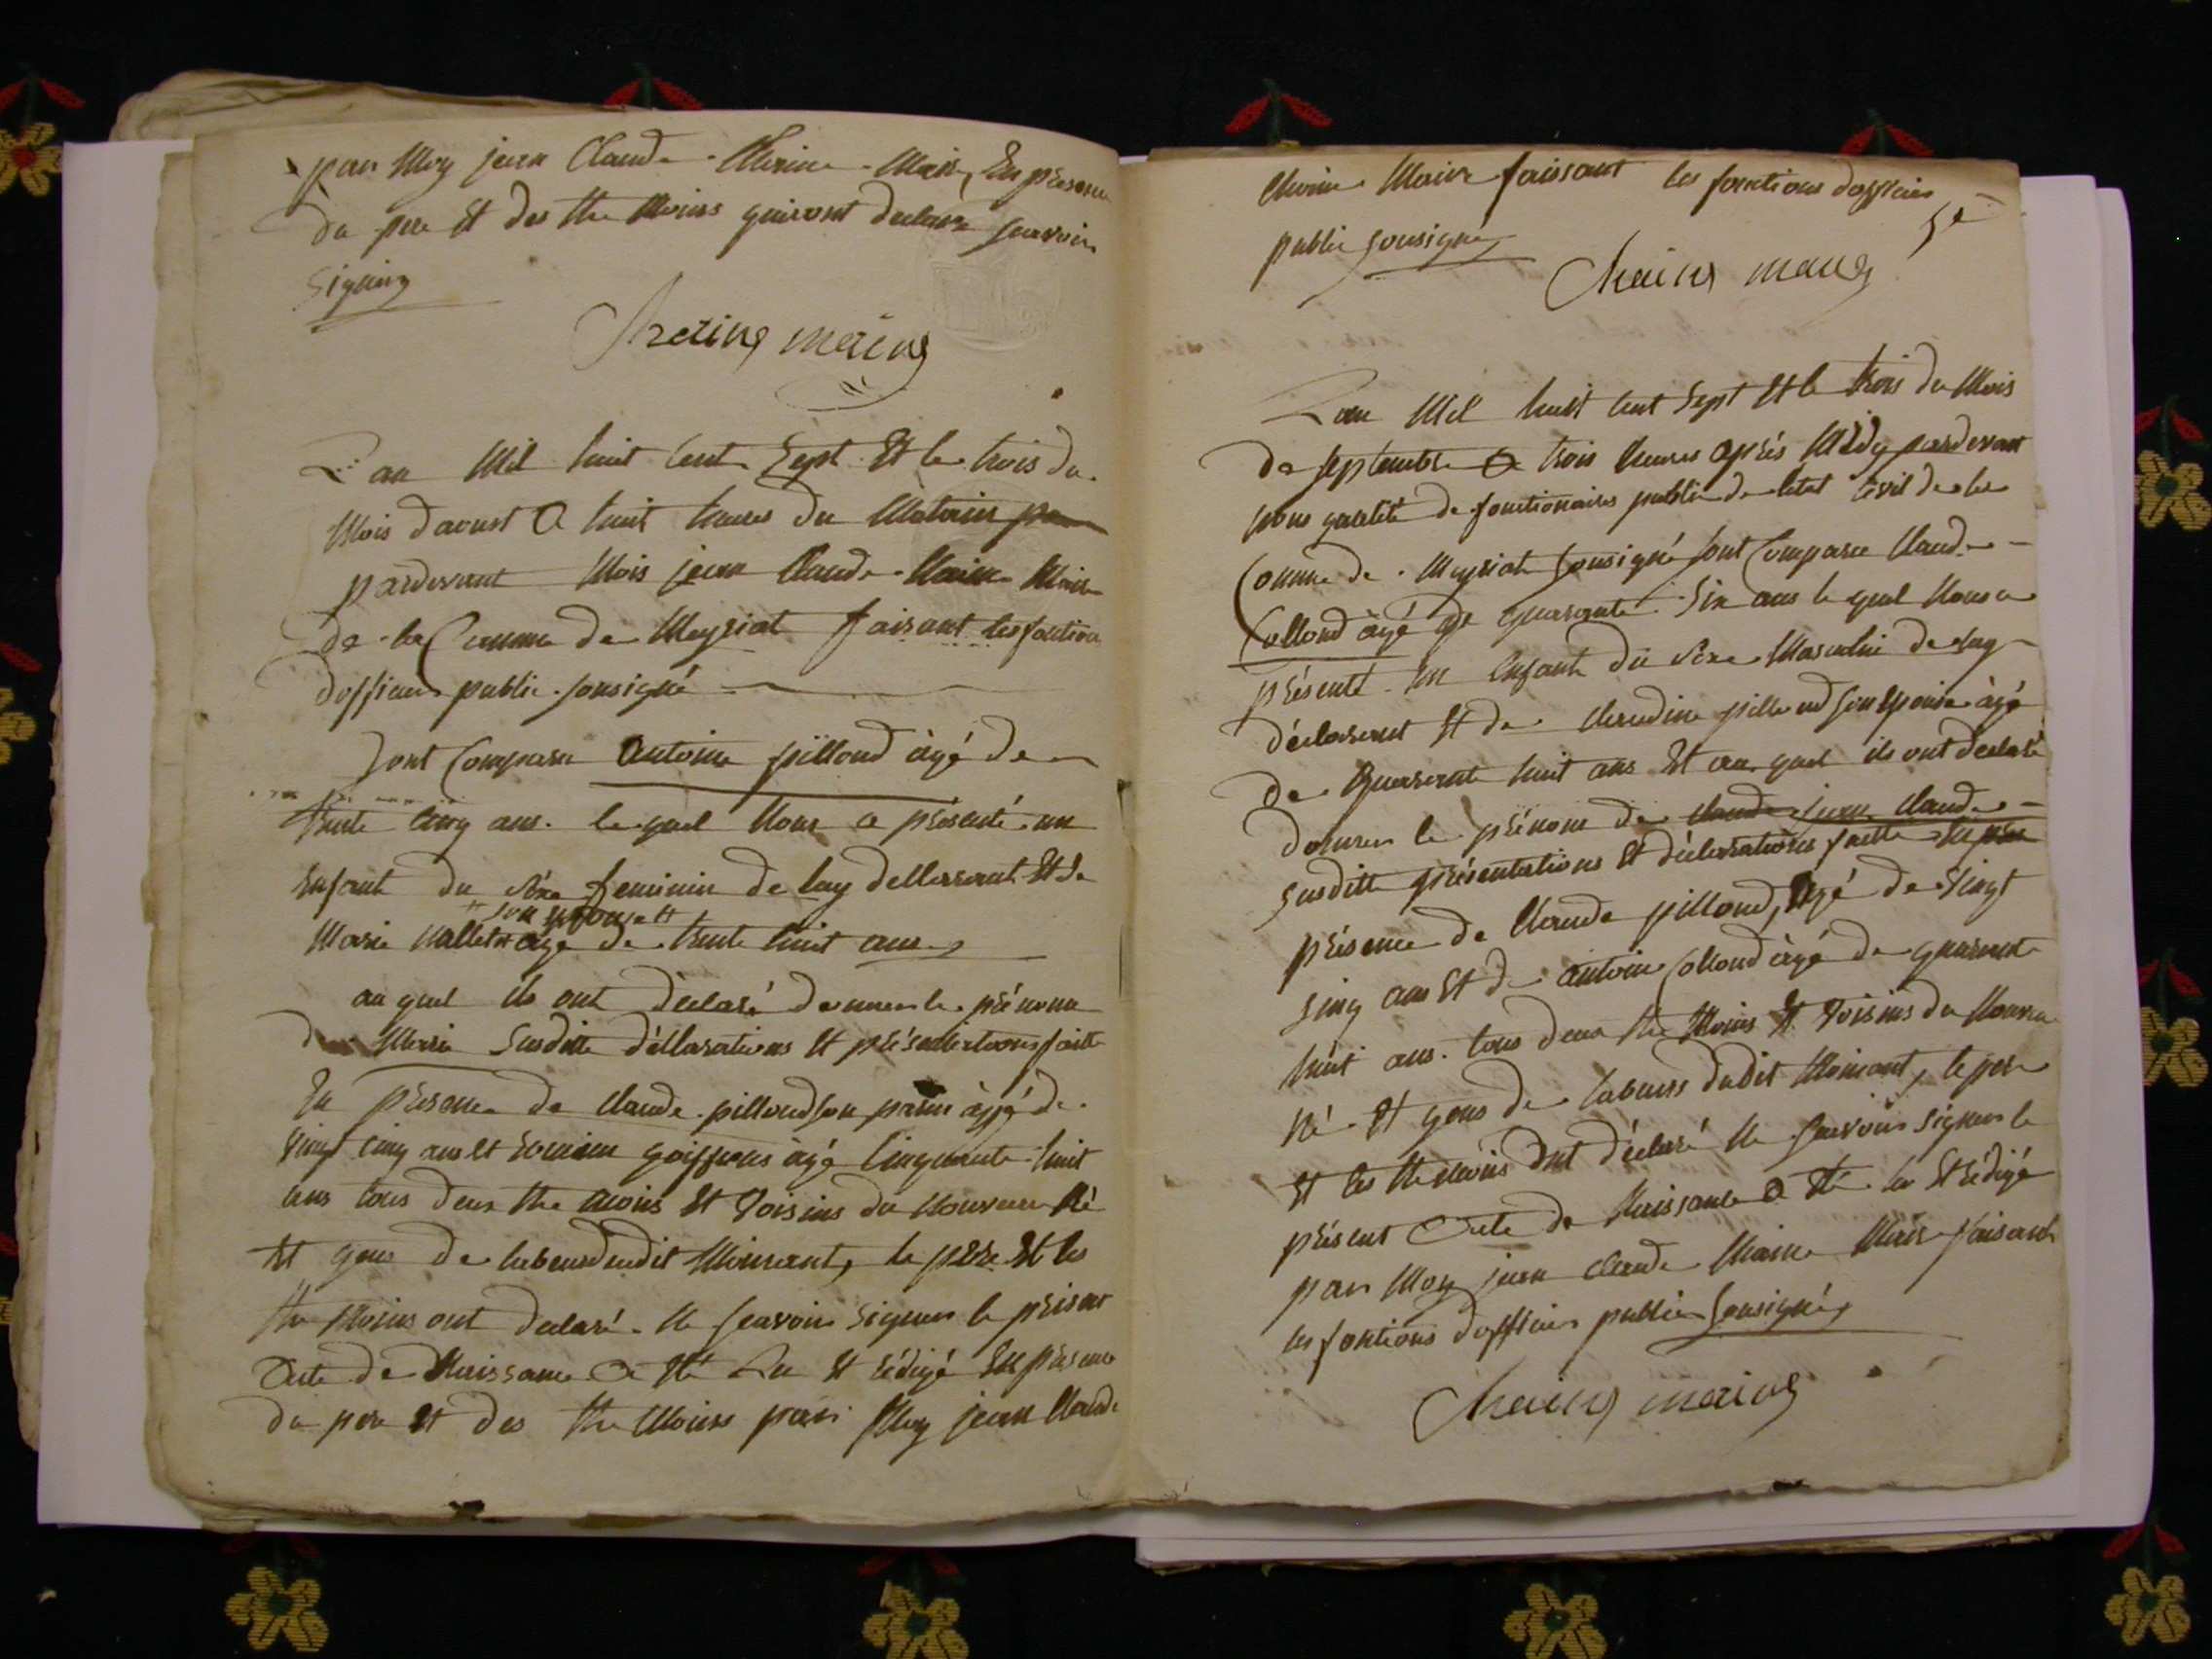 par Moy jean Claude - Maire, En presence
du pere Et des the Moins quiront declare scavoir
signing
maing
Lan Mil huit Cent Sept Et le trois du
Mois daoust a huit heures du Matain
pardevant Mois jean Claude Maire
de la Comune de Meyriat faisant les fontion
dofficier public sousigné
sont Comparu antoine pillond àgé de
trente Cinq ans. le quel Nous a présenté un
Enfant du séxe feminin de luy dellarant Et de
"son Epouse"
Marie àgé de trente huit ans
au quel ils ont déclaré donner le prénom
de Marie Susditte déllarations Et présentations faitte
En présence de Claude pillond son parin àgé de
Vingt Cinq ans Et àgé Cinquante huit
ans tous deux the moins Et Voisins du Nouveau Né
Et gens de labeur dudit le père Et les
the Moins ont declaré Ne scavoir Signer le présent
acte de Naissance a Eté Lu Et rédigé En présence
du pere Et des the Moins par Moy jean Claude
Maire faisant les fonctions dofficier
public sousigné
5e
Lan Mil huit Cent Sept Et le trois du Mois
de septembre a trois heures après Midy pardevant
Nous qualité de fonctionaires public de letat Civil de la
Comune de Meyriat sousigné sont Comparu Claude
Collond àgé de quarante Six ans le quel Nous a
présenté un Enfant du Séxe Masculin de luy
déclarant Et de Claudine pillond son Epouse àgé
de quarante huit ans Et au quel ils ont declaré
donner le prénom de claude jean claude
susditte présentations Et déclarations faitte
présence de Claude pillond, Agé de Vingt
Sinq ans Et de antoine Collond àgé de quarante
huit ans. tous deux the Moins Et Voisins du Nouveau
Né Et gens de labeurs dudit le pere
Et les the moins ont déclaré Ne scavoir Signer le
présent acte de Naissance a Eté lu Et rédigé
par Moy jean Claude Maire faisant
les fontions dofficier public sousigné